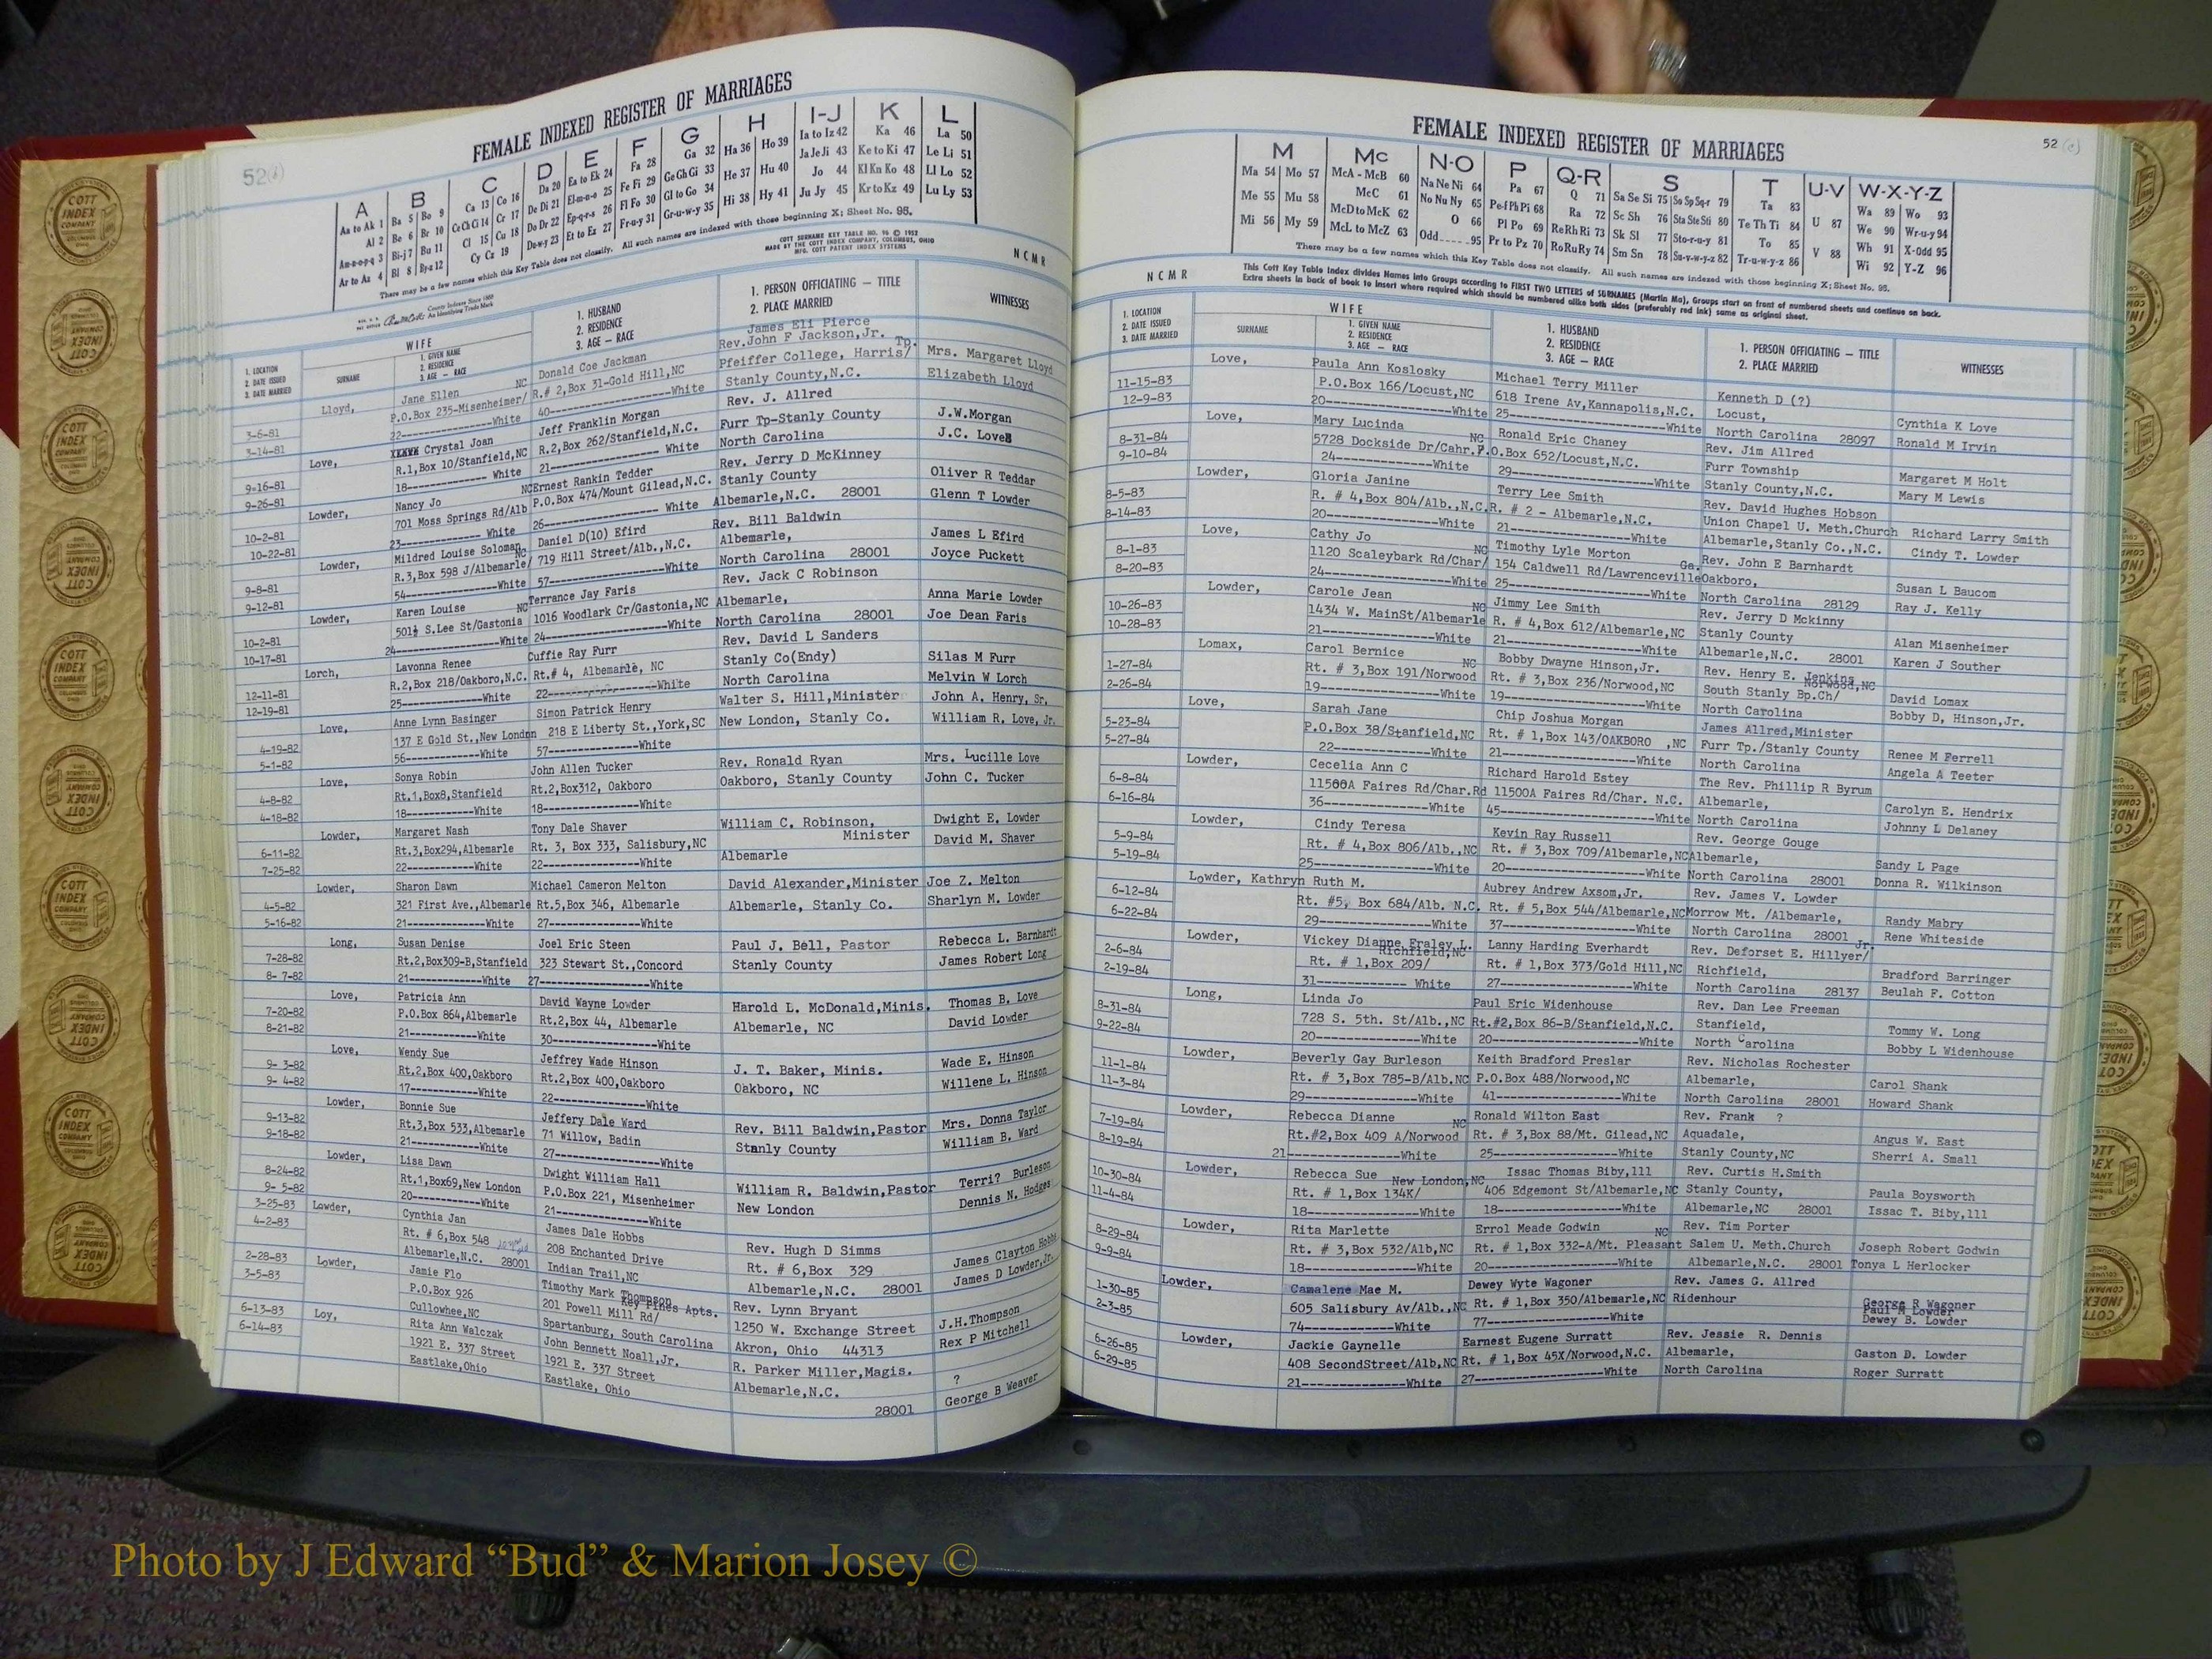 52(b)
FEMALE INDEXED REGISTER OF MARRIAGES
A B C D E F G H I-J K L
Aa to Ak 1 Ba 5 Bo 9 Ca 13 Co 16 Da 20 Ea to Ek 24 Fa 28 Ga 32 Ha 36 Ho 39 Ia to Iz 42 Ka 46 La 50
Al 2 Be 6 Br 10 Ce Ch Ci 14 Cr 17 De Di 21 El-m-n-o 25 Fe Fi 29 Ge Gh Gi 33 He 37 Hu 40 Ja Je Ji 43 Ke to Ki 47 Le Li 51
Am-n-o-p-q 3 Bi-j 7 Bu 11 Cl 15 Cu 18 Do Dr 22 Ep-q-r-s 26 Fl Fo 30 Gl to Go 34 Hi 38 Hy 41 Jo 44 Kl Kn Ko 48 Ll Lo 52
Ar to Az 4 Bl 8 By-z 12 Cy Cz 19 Du-w-y 23 Et to Ez 27 Fr-u-y 31 Gr-u-w-y 35 Ju Jy 45 Kr to Kz 49 Lu Ly 53
There may be a few names which this Key Table does not classify. All such names are indexed with those beginning X; Sheet No. 95.
COTT SURNAME KEY TABLE NO. 96 © 1952
MADE BY THE COTT INDEX COMPANY, COLUMBUS, OHIO
MFG. COTT PATENT INDEX SYSTEMS
County Indexes Since 1888
An Identifying Trade Mark
NCMR
1. LOCATION
2. DATE ISSUED
3. DATE MARRIED
WIFE
SURNAME
1. GIVEN NAME
2. RESIDENCE
3. AGE — RACE
1. HUSBAND
2. RESIDENCE
3. AGE — RACE
1. PERSON OFFICIATING — TITLE
2. PLACE MARRIED
WITNESSES
James Eli Pierce
Lloyd, Jane Ellen NC Donald Coe Jackman Rev.John F Jackson,Jr. Tp. Mrs. Margaret Lloyd
3-6-81 P.O.Box 235-Misenheimer/ R.# 2,Box 31-Gold Hill,NC Pfeiffer College, Harris/ Elizabeth Lloyd
3-14-81 22--------------White 40--------------------White Stanly County,N.C.
Love, Crystal Joan Jeff Franklin Morgan Rev. J. Allred J.W.Morgan
9-16-81 R.1,Box 10/Stanfield,NC R.2,Box 262/Stanfield,N.C. Furr Tp-Stanly County J.C. Love
9-26-81 18-------------- White 21------------------ White North Carolina
Lowder, Nancy Jo NC Ernest Rankin Tedder Rev. Jerry D McKinney Oliver R Teddar
10-2-81 701 Moss Springs Rd/Alb P.O.Box 474/Mount Gilead,N.C. Stanly County Glenn T Lowder
10-22-81 23-------------- White 26-------------------- White Albemarle,N.C. 28001
Lowder, Mildred Louise Soloman NC Daniel D(10) Efird Rev. Bill Baldwin James L Efird
9-8-81 R.3,Box 598 J/Albemarle/ 719 Hill Street/Alb.,N.C. Albemarle, Joyce Puckett
9-12-81 54---------------White 57--------------------White North Carolina 28001
Lowder, Karen Louise NC Terrance Jay Faris Rev. Jack C Robinson Anna Marie Lowder
10-2-81 501½ S.Lee St/Gastonia 1016 Woodlark Cr/Gastonia,NC Albemarle, Joe Dean Faris
10-17-81 24-----------------White 24---------------------White North Carolina 28001
Lorch, Lavonna Renee Cuffie Ray Furr Rev. David L Sanders Silas M Furr
12-11-81 R.2,Box 218/Oakboro,N.C. Rt.# 4, Albemarle, NC Stanly Co(Endy) Melvin W Lorch
12-19-81 25--------------White 22-------------------White North Carolina
Love, Anne Lynn Basinger Simon Patrick Henry Walter S. Hill,Minister John A. Henry, Sr,
4-19-82 137 E Gold St.,New London 218 E Liberty St.,York,SC New London, Stanly Co. William R. Love, Jr.
5-1-82 56--------------White 57----------------White
Love, Sonya Robin John Allen Tucker Rev. Ronald Ryan Mrs. Lucille Love
4-8-82 Rt.1,Box8,Stanfield Rt.2,Box312, Oakboro Oakboro, Stanly County John C. Tucker
4-18-82 18--------------White 18----------------White
Lowder, Margaret Nash Tony Dale Shaver William C. Robinson, Minister Dwight E. Lowder
6-11-82 Rt.3,Box294,Albemarle Rt. 3, Box 333, Salisbury,NC Albemarle David M. Shaver
7-25-82 22--------------White 22----------------White
Lowder, Sharon Dawn Michael Cameron Melton David Alexander,Minister Joe Z. Melton
4-5-82 321 First Ave.,Albemarle Rt.5,Box 346, Albemarle Albemarle, Stanly Co. Sharlyn M. Lowder
5-16-82 21--------------White 27----------------White
Long, Susan Denise Joel Eric Steen Paul J. Bell, Pastor Rebecca L. Barnhardt
7-28-82 Rt.2,Box309-B,Stanfield 323 Stewart St.,Concord Stanly County James Robert Long
8- 7-82 21--------------White 27-------------------White
Love, Patricia Ann David Wayne Lowder Harold L. McDonald,Minis. Thomas B. Love
7-20-82 P.O.Box 864,Albemarle Rt.2,Box 44, Albemarle Albemarle, NC David Lowder
8-21-82 21--------------White 30------------------White
Love, Wendy Sue Jeffrey Wade Hinson J. T. Baker, Minis. Wade E. Hinson
9- 3-82 Rt.2,Box 400,Oakboro Rt.2,Box 400,Oakboro Oakboro, NC Willene L. Hinson
9- 4-82 17--------------White 22----------------White
Lowder, Bonnie Sue Jeffery Dale Ward Rev. Bill Baldwin,Pastor Mrs. Donna Taylor
9-13-82 Rt.3,Box 533,Albemarle 71 Willow, Badin Stanly County William B. Ward
9-18-82 21--------------White 27------------------White
Lowder, Lisa Dawn Dwight William Hall William R. Baldwin,Pastor Terri? Burleson
8-24-82 Rt.1,Box69,New London P.O.Box 221, Misenheimer New London Dennis N. Hodges
9- 5-82 20--------------White 21----------------White
3-25-83 Lowder, Cynthia Jan James Dale Hobbs Rev. Hugh D Simms James Clayton Hobbs
4-2-83 Rt. # 6,Box 548 208 Enchanted Drive Rt. # 6,Box 329 James D Lowder,Jr.
Albemarle,N.C. 28001 Indian Trail,NC Albemarle,N.C. 28001
2-28-83 Lowder, Jamie Flo Timothy Mark Thompson Rev. Lynn Bryant J.H.Thompson
3-5-83 P.O.Box 926 201 Powell Mill Rd/ Key Pines Apts. 1250 W. Exchange Street Rex P Mitchell
Cullowhee,NC Spartanburg, South Carolina Akron, Ohio 44313
6-13-83 Loy, Rita Ann Walczak John Bennett Noall,Jr. R. Parker Miller,Magis. ?
6-14-83 1921 E. 337 Street 1921 E. 337 Street Albemarle,N.C. George B Weaver
Eastlake,Ohio Eastlake, Ohio 28001
52
FEMALE INDEXED REGISTER OF MARRIAGES
M Mc N-O P Q-R S T U-V W-X-Y-Z
Ma 54 Mo 57 McA - McB 60 Na Ne Ni 64 Pa 67 Q 71 Sa Se Si 75 So Sp Sq-r 79 Ta 83 U 87 Wa 89 Wo 93
Me 55 Mu 58 McC 61 No Nu Ny 65 Pe-f Ph Pi 68 Ra 72 Sc Sh 76 Sta Ste Sti 80 Te Th Ti 84 We 90 Wr-u-y 94
Mi 56 My 59 McD to McK 62 O 66 Pl Po 69 Re Rh Ri 73 Sk Sl 77 Sto-r-u-y 81 To 85 V 88 Wh 91 X-Odd 95
McL to McZ 63 Odd 95 Pr to Pz 70 Ro Ru Ry 74 Sm Sn 78 Su-v-w-y-z 82 Tr-u-w-y-z 86 Wi 92 Y-Z 96
There may be a few names which this Key Table does not classify. All such names are indexed with those beginning X; Sheet No. 95.
NCMR
This Cott Key Table Index divides Names into Groups according to FIRST TWO LETTERS of SURNAMES (Martin Ma), Groups start on front of numbered sheets and continue on back.
Extra sheets in back of book to insert where required which should be numbered alike both sides (preferably red ink) same as original sheet.
1. LOCATION
2. DATE ISSUED
3. DATE MARRIED
WIFE
SURNAME
1. GIVEN NAME
2. RESIDENCE
3. AGE — RACE
1. HUSBAND
2. RESIDENCE
3. AGE — RACE
1. PERSON OFFICIATING — TITLE
2. PLACE MARRIED
WITNESSES
Love, Paula Ann Koslosky Michael Terry Miller Kenneth D (?) Cynthia K Love
11-15-83 P.O.Box 166/Locust,NC 618 Irene Av,Kannapolis,N.C. Locust, Ronald M Irvin
12-9-83 20-----------------White 25-----------------White North Carolina 28097
Love, Mary Lucinda NC Ronald Eric Chaney Rev. Jim Allred Margaret M Holt
8-31-84 5728 Dockside Dr/Cahr, P.O.Box 652/Locust,N.C. Furr Township Mary M Lewis
9-10-84 24---------------White 29-----------------White Stanly County,N.C.
Lowder, Gloria Janine Terry Lee Smith Rev. David Hughes Hobson Richard Larry Smith
8-5-83 R. # 4,Box 804/Alb.,N.C. R. # 2 - Albemarle,N.C. Union Chapel U. Meth.Church Cindy T. Lowder
8-14-83 20---------------White 21-----------------White Albemarle,Stanly Co.,N.C.
Love, Cathy Jo NC Timothy Lyle Morton Ga. Rev. John E Barnhardt Susan L Baucom
8-1-83 1120 Scaleybark Rd/Char/ 154 Caldwell Rd/Lawrenceville Oakboro, Ray J. Kelly
8-20-83 24-----------------White 25-----------------White North Carolina 28129
Lowder, Carole Jean NC Jimmy Lee Smith Rev. Jerry D Mckinny Alan Misenheimer
10-26-83 1434 W. MainSt/Albemarle R. # 4,Box 612/Albemarle,NC Stanly County Karen J Souther
10-28-83 21---------------White 21-----------------White Albemarle,N.C. 28001
Lomax, Carol Bernice NC Bobby Dwayne Hinson,Jr. Rev. Henry E. Jenkins Norwood,NC David Lomax
1-27-84 Rt. # 3,Box 191/Norwood Rt. # 3,Box 236/Norwood,NC South Stanly Bp.Ch/ Bobby D, Hinson,Jr.
2-26-84 19---------------White 19-----------------White North Carolina
Love, Sarah Jane Chip Joshua Morgan James Allred,Minister Renee M Ferrell
5-23-84 P.O.Box 38/Stanfield,NC Rt. # 1,Box 143/OAKBORO ,NC Furr Tp./Stanly County Angela A Teeter
5-27-84 22-------------White 21-----------------White North Carolina
Lowder, Cecelia Ann C Richard Harold Estey The Rev. Phillip R Byrum Carolyn E. Hendrix
6-8-84 11500A Faires Rd/Char.Rd 11500A Faires Rd/Char. N.C. Albemarle, Johnny L Delaney
6-16-84 36--------------White 45-------------------White North Carolina
Lowder, Cindy Teresa Kevin Ray Russell Rev. George Gouge Sandy L Page
5-9-84 Rt. # 4,Box 806/Alb.,NC Rt. # 3,Box 709/Albemarle,NC Albemarle, Donna R. Wilkinson
5-19-84 25---------------White 20-----------------White North Carolina 28001
Lowder, Kathryn Ruth M. Aubrey Andrew Axsom,Jr. Rev. James V. Lowder Randy Mabry
6-12-84 Rt. #5, Box 684/Alb. N.C. Rt. # 5,Box 544/Albemarle,NC Morrow Mt. /Albemarle, Rene Whiteside
6-22-84 29---------------White 37-----------------White North Carolina 28001
Lowder, Vickey Dianne Fraley L. Lanny Harding Everhardt Rev. Deforset E. Hillyer/ Jr. Bradford Barringer
2-6-84 Rt. # 1,Box 209/ Richfield,NC Rt. # 1,Box 373/Gold Hill,NC Richfield, Beulah F. Cotton
2-19-84 31------------- White 27-----------------White North Carolina 28137
Long, Linda Jo Paul Eric Widenhouse Rev. Dan Lee Freeman Tommy W. Long
8-31-84 728 S. 5th. St/Alb.,NC Rt.#2,Box 86-B/Stanfield,N.C. Stanfield, Bobby L Widenhouse
9-22-84 20---------------White 20-------------------White North Carolina
Lowder, Beverly Gay Burleson Keith Bradford Preslar Rev. Nicholas Rochester Carol Shank
11-1-84 Rt. # 3,Box 785-B/Alb.NC P.O.Box 488/Norwood,NC Albemarle, Howard Shank
11-3-84 29---------------White 41-----------------White North Carolina 28001
Lowder, Rebecca Dianne NC Ronald Wilton East Rev. Frank ? Angus W. East
7-19-84 Rt.#2,Box 409 A/Norwood Rt. # 3,Box 88/Mt. Gilead,NC Aquadale, Sherri A. Small
8-19-84 21-----------------White 25-----------------White Stanly County,NC
Lowder, Rebecca Sue Issac Thomas Biby,111 Rev. Curtis H.Smith Paula Boysworth
10-30-84 Rt. # 1,Box 134K/ New London,NC 406 Edgemont St/Albemarle,NC Stanly County, Issac T. Biby,111
11-4-84 18---------------White 18----------------White Albemarle,NC 28001
Lowder, Rita Marlette Errol Meade Godwin NC Rev. Tim Porter Joseph Robert Godwin
8-29-84 Rt. # 3,Box 532/Alb,NC Rt. # 1,Box 332-A/Mt. Pleasant Salem U. Meth.Church Tonya L Herlocker
9-9-84 18---------------White 20-----------------White Albemarle,N.C. 28001
Lowder, Camalene Mae M. Dewey Wyte Wagoner Rev. James G. Allred George R Wagoner
1-30-85 605 Salisbury Av/Alb.,NC Rt. # 1,Box 350/Albemarle,NC Ridenhour Paul M Lowder
2-3-85 74---------------White 77-----------------White Dewey B. Lowder
Lowder, Jackie Gaynelle Earnest Eugene Surratt Rev. Jessie R. Dennis Gaston D. Lowder
6-26-85 408 SecondStreet/Alb,NC Rt. # 1,Box 45X/Norwood,N.C. Albemarle, Roger Surratt
6-29-85 21---------------White 27-----------------White North Carolina
COTT INDEX COMPANY
Photo by J Edward “Bud” & Marion Josey ©